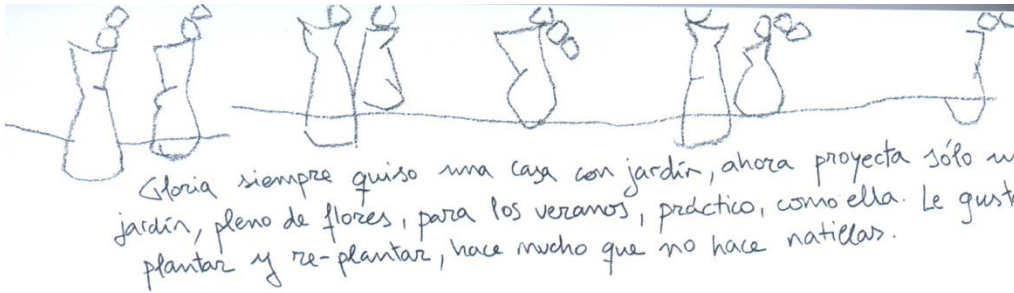 Gloria siempre quiso una casa con jardín, ahora proyecta sólo
jardín, pleno de flores, para los veranos, práctico, como ella. Le
plantar y re-plantar, hace mucho que no hace natillas.